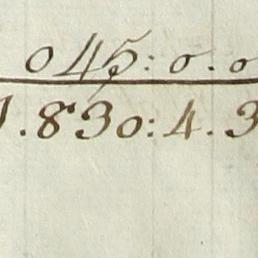 045:0.0
1.830:4.3